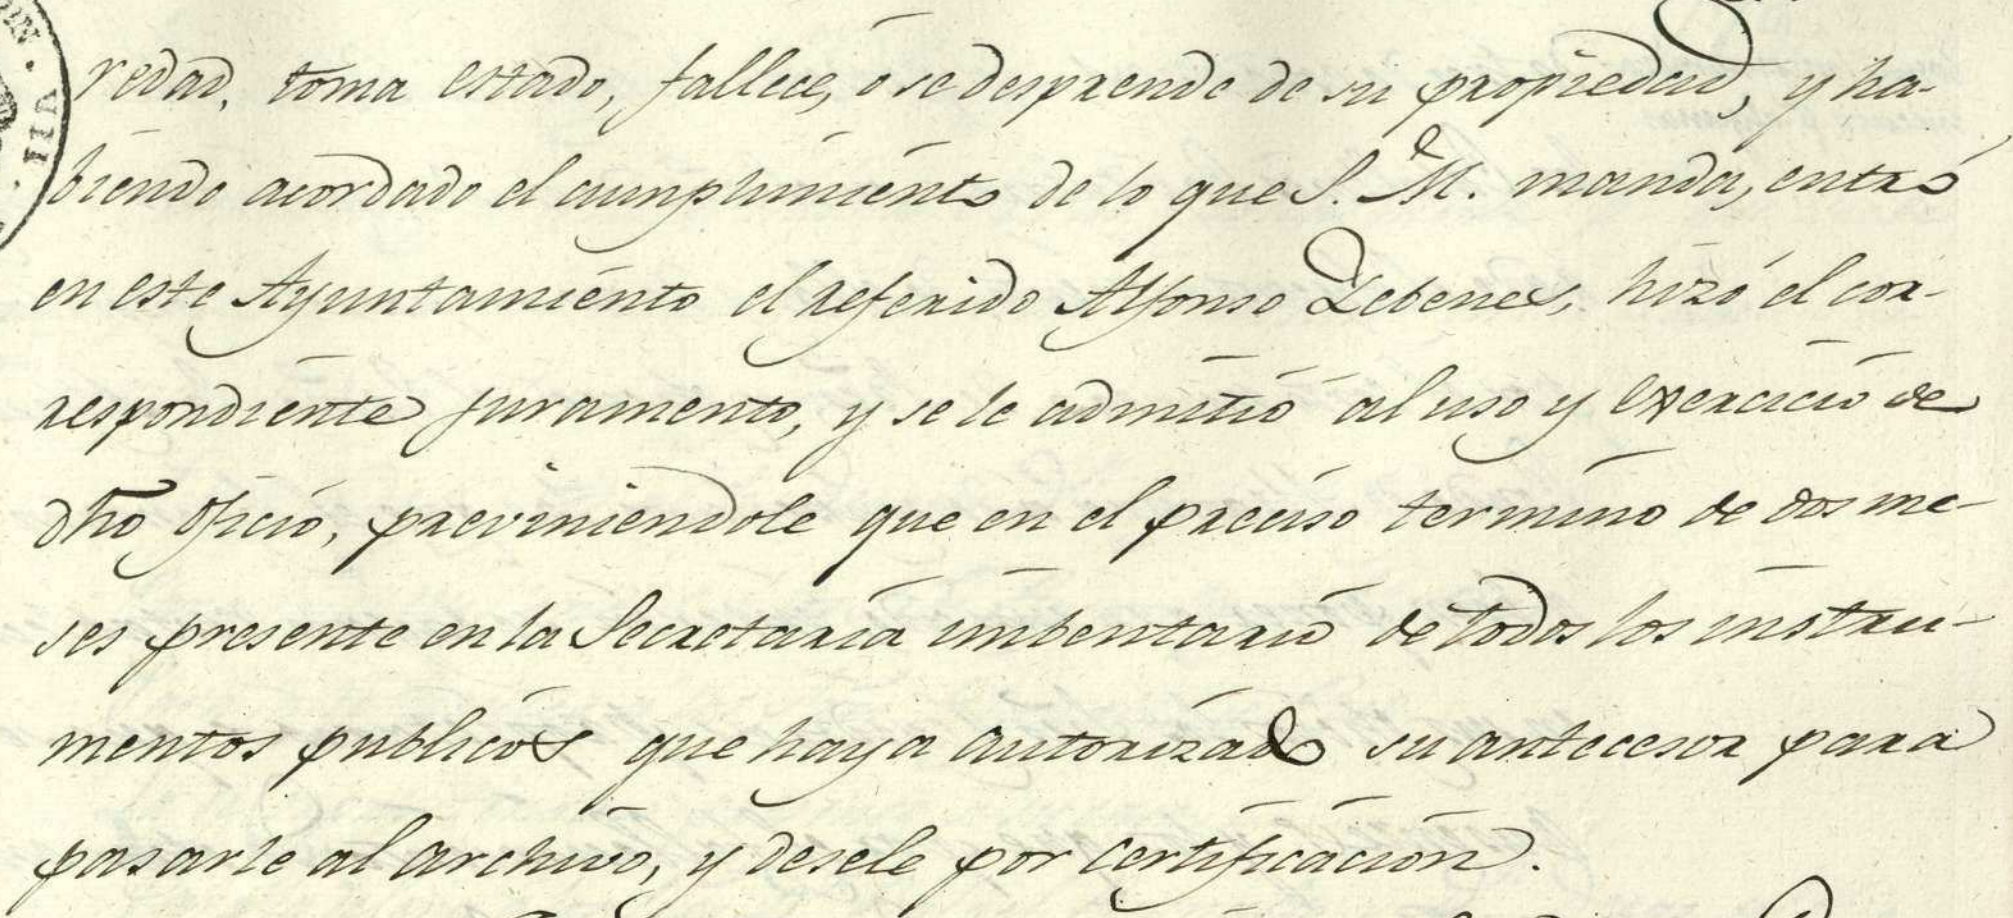 redad, toma estado, fallece, ó se desprende de su propiedad, y ha-
biendo acordado el cumplimiento de lo que S. M. manda, entró
en este Ayuntamiento el referido Alfonso Lebenes, hizó el cor-
respondiente juramento, y se le admitió al uso y exercicio de
dho oficio, previniendole que en el preciso termino de dos me-
ses presente en la Secretaria imbentario de todos los instru-
mentos publicos que haya autorizado su antecesor para
pasarle al archivo, y desele por certificacion.